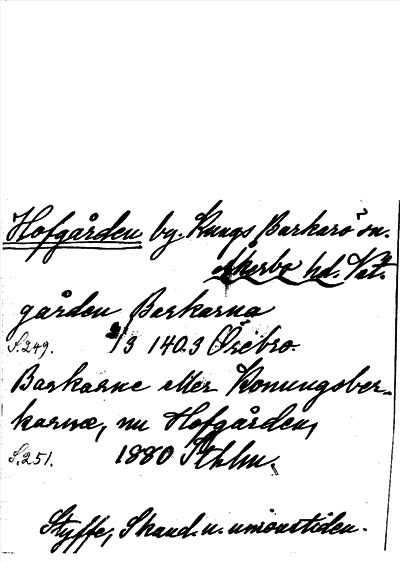 Hofgården by. Kungs Barkarö sn.
Åkerbo hd. Väst.
gården Barkarna
S. 249. 2/3 1403 Örebro.
Barkarne eller Konungsber-
karnæ, nu Hofgården,
S. 251. 1880 Sthlm.
Styffe, Skand. u. unionstiden.